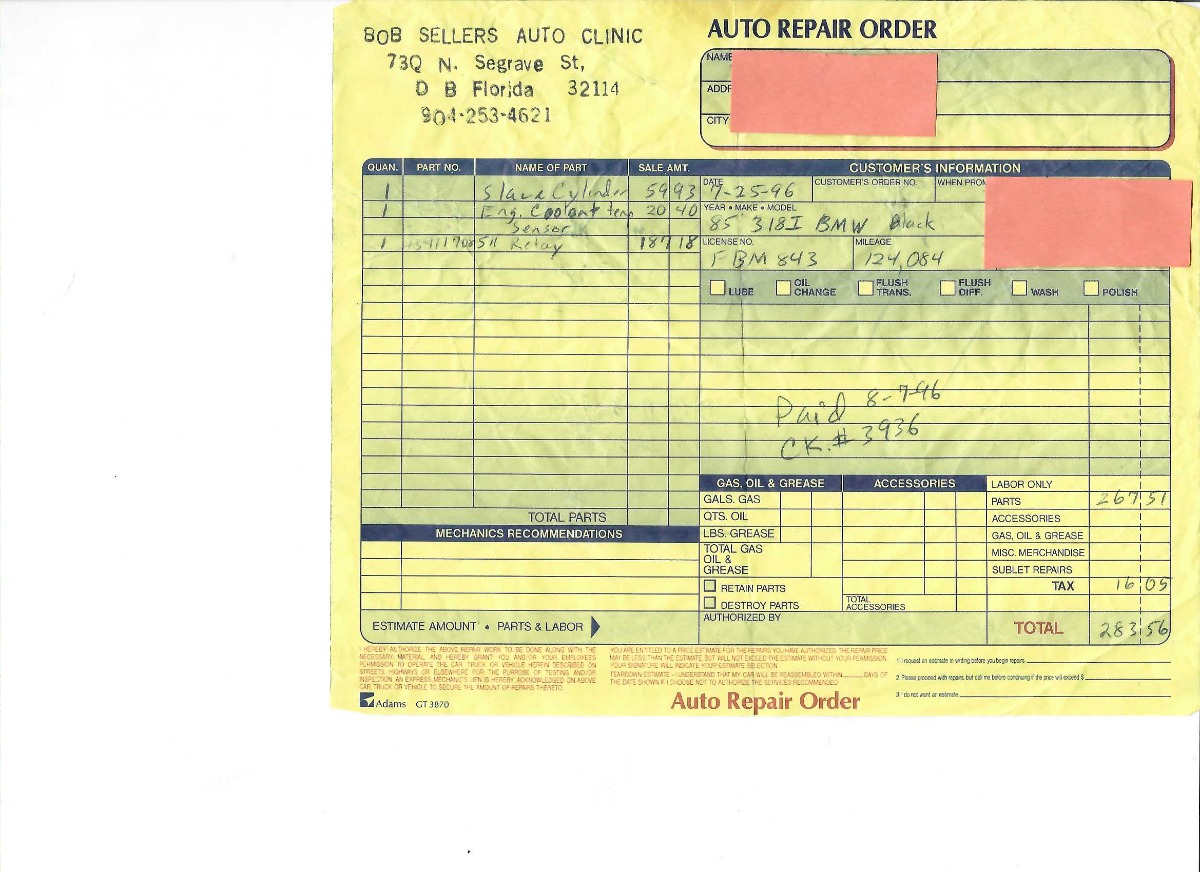 BOB SELLERS AUTO CLINIC
730 N. Segrave St,
D B Florida 32114
904-253-4621
AUTO REPAIR ORDER
NAME
ADD
CITY
QUAN. PART NO. NAME OF PART SALE AMT. CUSTOMER'S INFORMATION
DATE 7-25-96 CUSTOMER'S ORDER NO. WHEN PROM
1 Slave Cylinder 59 93
YEAR • MAKE • MODEL
85 318I BMW Black
1 Eng. Coolant temp 20 40
Sensor
LICENSE NO. FBM 843 MILEAGE 124,084
1 Relay 187 18
LUBE OIL CHANGE FLUSH TRANS. FLUSH DIFF. WASH POLISH
Paid 8-7-96
CK.# 3936
TOTAL PARTS
MECHANICS RECOMMENDATIONS
ESTIMATE AMOUNT • PARTS & LABOR
GAS, OIL & GREASE ACCESSORIES
GALS. GAS
QTS. OIL
LBS. GREASE
TOTAL GAS
OIL &
GREASE
RETAIN PARTS
DESTROY PARTS
TOTAL
ACCESSORIES
AUTHORIZED BY
LABOR ONLY
PARTS 267 51
ACCESSORIES
GAS, OIL & GREASE
MISC. MERCHANDISE
SUBLET REPAIRS
TAX 16 05
TOTAL 283 56
I HEREBY AUTHORIZE THE ABOVE REPAIR WORK TO BE DONE ALONG WITH THE
NECESSARY MATERIAL, AND HEREBY GRANT YOU AND/OR YOUR EMPLOYEES
PERMISSION TO OPERATE THE CAR, TRUCK OR VEHICLE HEREIN DESCRIBED ON
STREETS, HIGHWAYS OR ELSEWHERE FOR THE PURPOSE OF TESTING AND/OR
INSPECTION. AN EXPRESS MECHANICS LIEN IS HEREBY ACKNOWLEDGED ON ABOVE
CAR TRUCK OR VEHICLE TO SECURE THE AMOUNT OF REPAIRS THERETO.
YOU ARE ENTITLED TO A PRICE ESTIMATE FOR THE REPAIRS YOU HAVE AUTHORIZED. THE REPAIR PRICE
MAY BE LESS THAN THE ESTIMATE BUT WILL NOT EXCEED THE ESTIMATE WITHOUT YOUR PERMISSION
YOUR SIGNATURE WILL INDICATE YOUR ESTIMATE SELECTION.
TEARDOWN ESTIMATE - I UNDERSTAND THAT MY CAR WILL BE REASSEMBLED WITHIN DAYS OF
THE DATE SHOWN IF I CHOOSE NOT TO AUTHORIZE THE SERVICES RECOMMENDED
1. I request an estimate in writing before you begin repairs.
2. Please proceed with repairs, but call me before continuing if the price will exceed $
3. I do not want an estimate.
Adams GT 3870
Auto Repair Order